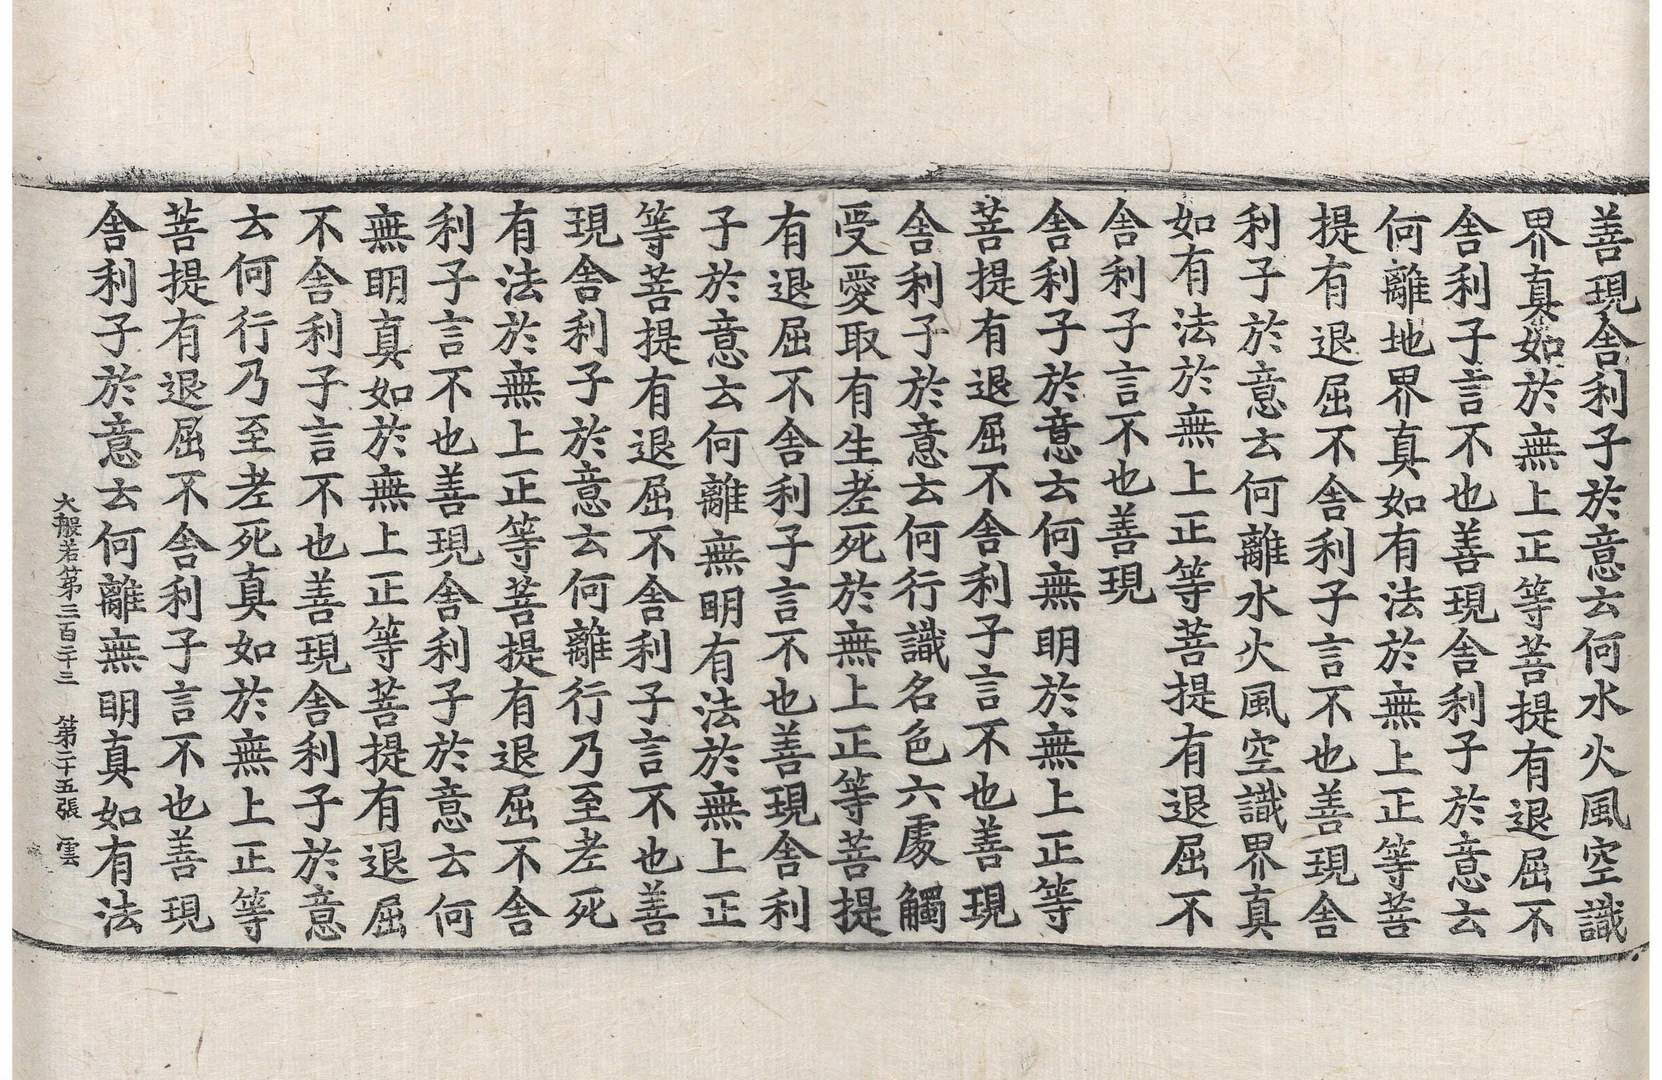 善現舍利子於意云何水火風空識
界真如於無上正等菩提有退屈不
舍利子言不也善現舍利子於意云
何離地界真如有法於無上正等菩
提有退屈不舍利子言不也善現舍
利子於意云何離水火風空識界真
如有法於無上正等菩提有退屈不
舍利子言不也善現
舍利子於意云何無明於無上正等
菩提有退屈不舍利子言不也善現
舍利子於意云何行識名色六處觸
受愛取有生老死於無上正等菩提
有退屈不舍利子言不也善現舍利
子於意云何離無明有法於無上正
等菩提有退屈不舍利子言不也善
現舍利子於意云何離行乃至老死
有法於無上正等菩提有退屈不舍
利子言不也善現舍利子於意云何
無明真如於無上正等菩提有退屈
不舍利子言不也善現舍利子於意
云何行乃至老死真如於無上正等
菩提有退屈不舍利子言不也善現
舍利子於意云何離無明真如有法
大般若第三百二十三 第十五張 雲